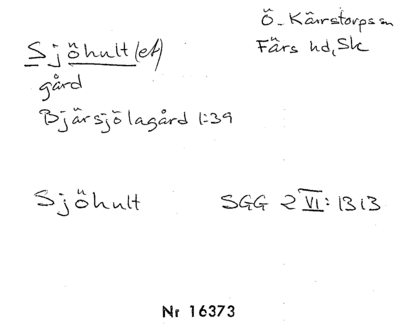 Sjöhult (et)
Ö. Kärrstorps sn
Färs hd, Sk
gård
Bjärsjölagård 1:39
Sjöhult SGG 2 VI: 1313
Nr 16373